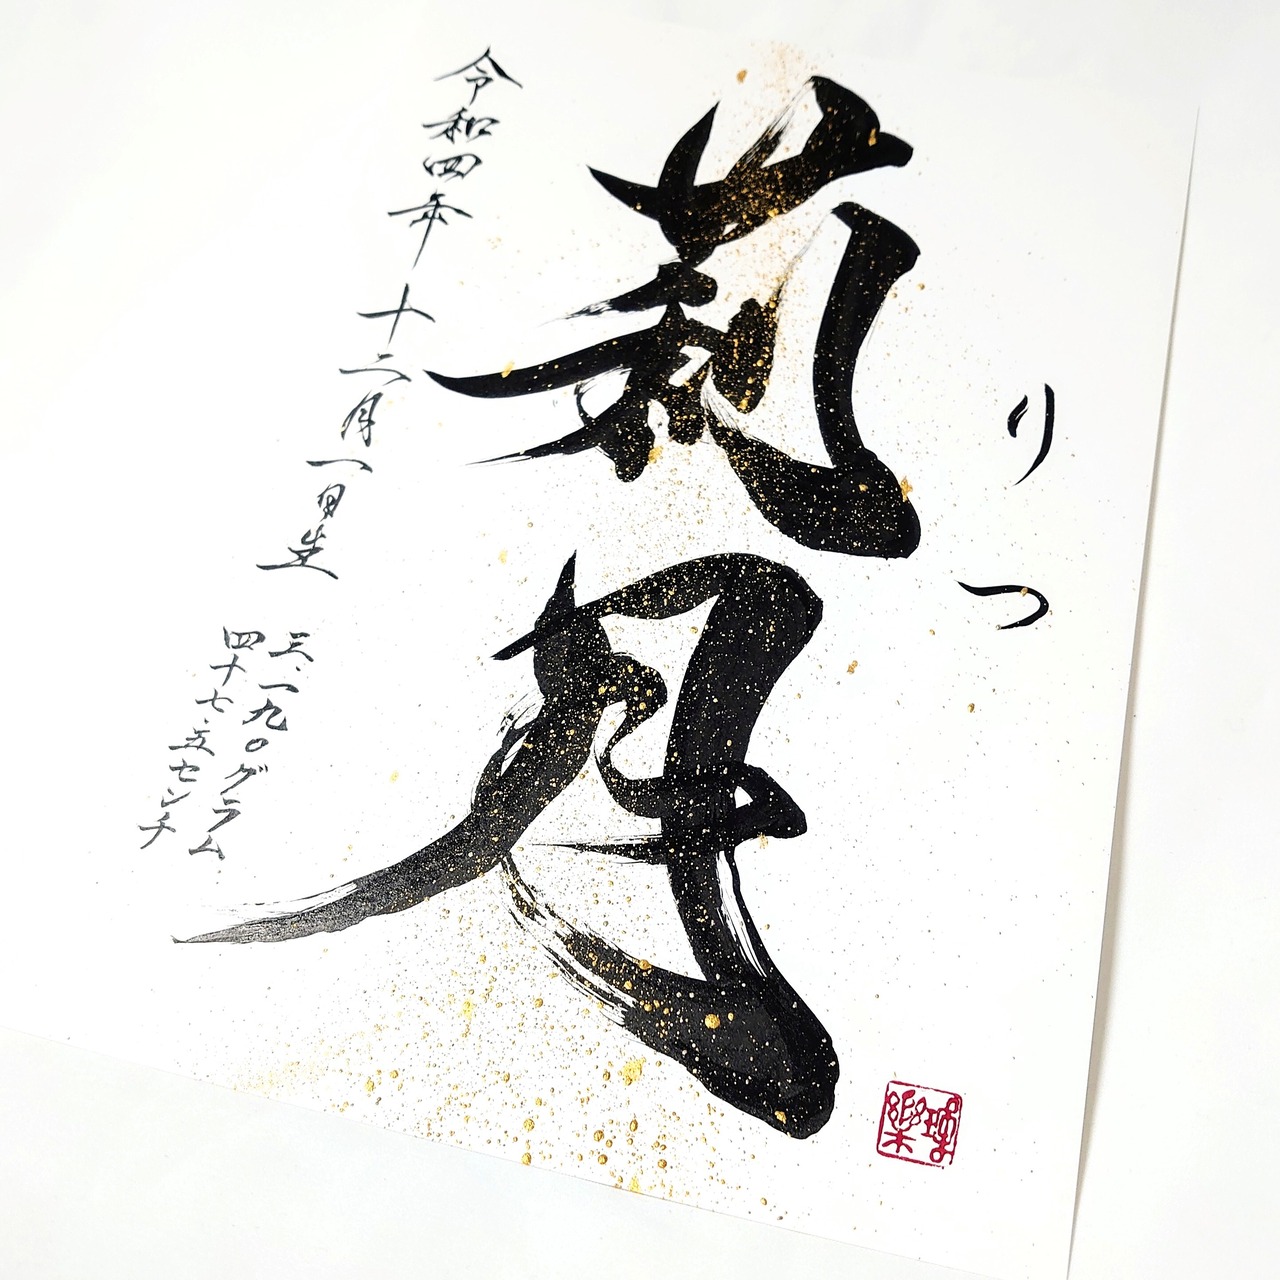 りつ
莉月
令和四年十二月一日生
三.一九〇グラム
四十七.五センチ